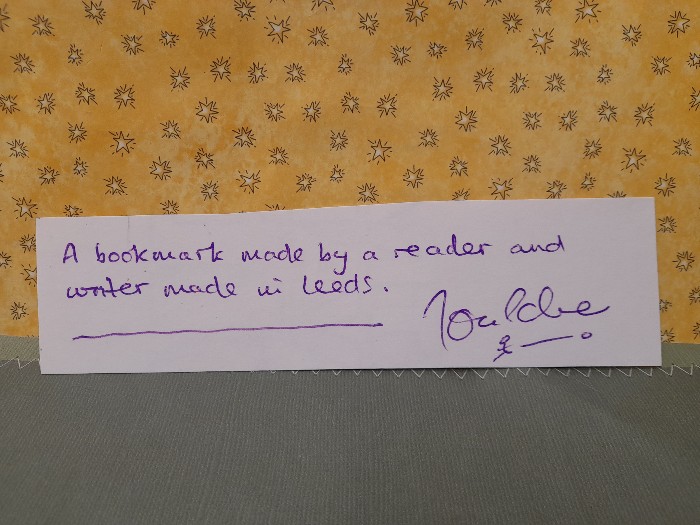 A bookmark made by a reader and
writer made in Leeds.